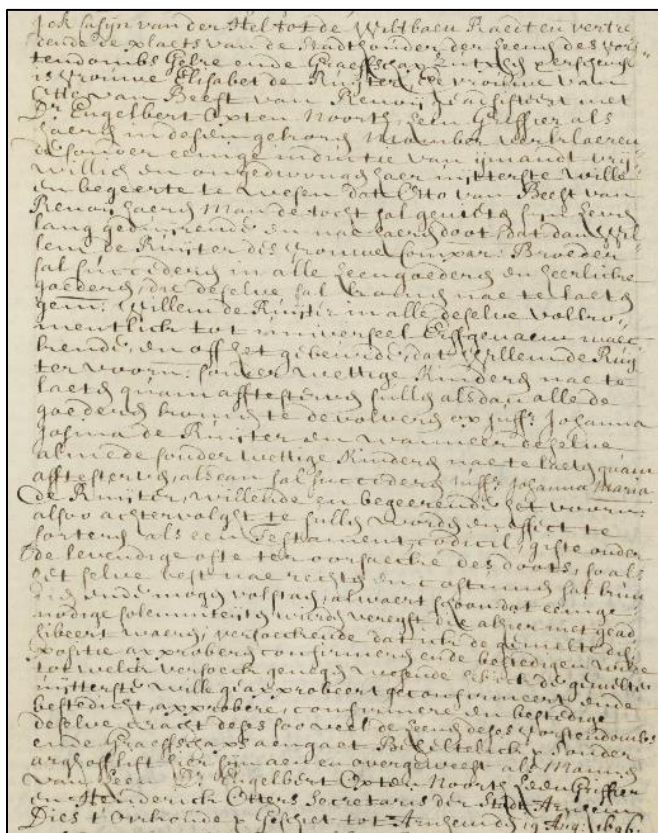 Ick Casijn van der Hel tot de Wiltbaen Raedt en vertre
dende de plaets van de Stadthouder der Leenen des vor
stendombs Gelre ende Graeffschap Zutphen
is vrouwe Elisabet de Ruijter, vrouwe van
Otto van Beest van Renoij, geassisteert met
Dr. Engelbert Opten Noorth, Leen Griffier als
haeren in desen gekoren Momber verklaeren
de sonder eenige inductie van ijmandt vrij
willich en ongedwongen haer uijtterste wille
en begeerte te wesen dat Otto van Beest van
Renoij haeren Man de tocht sal genieten sijn leven
lang geduirende en nae haeren doot dat dan Wil
lem de Ruijter des vrouwe Compar: Broeder
sal succederen in alle Leengoederen en heerlicke
goederen, die deselve sal komen nae te laeten
gem: Willem de Ruijter in alle deselve volko
mentlick tot universeel Erffgenaem maec
kende, en off het gebeurde, dat Willem de Ruij
ter voorn: sonder wettige kinderen nae te
laeten quam afftesterven sullen alsdan alle de
goederen komen te devolveren op Juffr. Johanna
Josina de Ruijter en wanneer deselve
almede sonder wettige kinderen nae te laeten quam
afftesterven, alsdan sal succederen Juffr. Johanna Maria
de Ruijter, willende en begeerende het voorn:
alsoo achtervolght te sullen worden en effect te
sorteren als een Testament, codicil, gifte onder
de levendige ofte ter oorsaecke des doots, so als
het selve best nae rechten en costumen sal kun
nen ende mogen volstaen, al waert schoon dat eenige
nodige solemniteijten wierden vereijst die alhier niet
waeren, versoeckende dat ick de gemelte dis
positie approberen confirmeren ende bestedigen wilde
tot welck versoeck genegen wesende hebbe ick de gemelte
uijtterste wille geapprobeert geconfirmeert ende
bestedicht, approbere, confirmere en bestedige
deselve cracht deses soo veel de Leenen deses vorstendombs
ende Graeffschaps aengaet Beheltelick sonder
argh off list hier sijn aen en over geweest als Mannen
van Leen Dr. Engelbert Opten Noorth Leen Griffier
en Henderick Otters Secretaris der Stadt Arnhem
Dies t'Orkonde Geschiet tot Arnhem den 19 Aug. 1696.